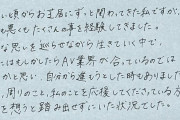 い頃からお芝居にずっと関わってきた私ですが、
も悪くもたくさんの事を経験してきました。
な思いを巡らせながら生きていく中で、
はもしかしたらAV業界が合っているのでは
かと思い、自分から違うとした時もありま
周りのこと、私のことを応援してくださっている
を想うと踏み出せずにいた状況でした。